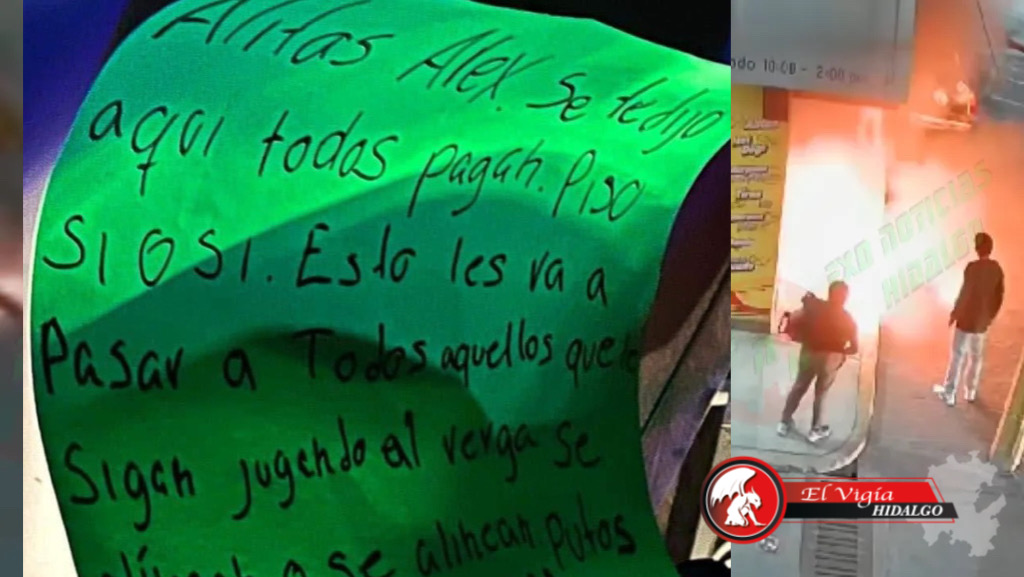 Alitas Alex. Se te dijo
aqui todos pagan. Piso
SI O SI. Esto les va a
Pasar a Todos aquellos que
Sigan jugendo al verga se
o se alinean putos
10:00 - 2:00
EXA NOTICIAS
HIDALGO
El Vigía
HIDALGO